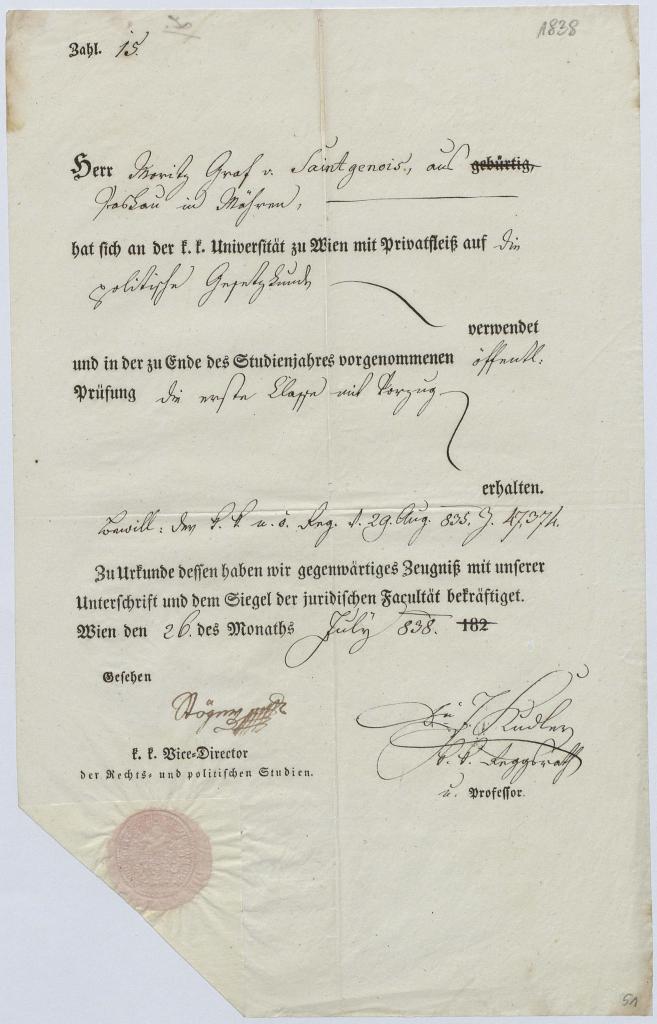 1838
Zahl. 15.
Herr Moritz Graf v. Saintgenois, aus gebürtig,
Paskau in Mähren,
hat sich an der k. k. Universität zu Wien mit Privatfleiß auf die
politische Gesetzkunde
verwendet
und in der zu Ende des Studienjahres vorgenommenen öffentl:
Prüfung die erste Classe mit Vorzug
erhalten.
Bewill: der k. k. n. ö. Reg. v. 29 Aug. 835. Z. 47,374.
Zu Urkunde dessen haben wir gegenwärtiges Zeugniß mit unserer
Unterschrift und dem Siegel der juridischen Facultät bekräftiget.
Wien den 26. des Monaths July 838. 182
Gesehen
k. k. Vice-Director
der Rechts- und politischen Studien.
J. Kudler
k. k. Reggsrath
u. Professor.
51